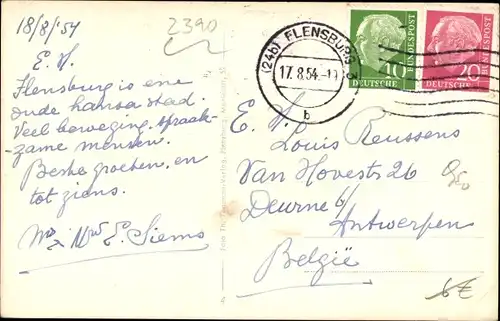 18/8/'54
2390
E. H.
Flensburg is ene
oude hansa stad.
Veel beweging, spraak-
zame mensen.
Beste groeten, en
tot ziens.
Mr & Mrs E. Siems
(24b) FLENSBURG
17.8.54.
b
10
DEUTSCHE BUNDESPOST
20
DEUTSCHE BUNDESPOST
E. H.
Louis Reussens
Van Hovests 26
Deurne b/
Antwerpen
België
6€